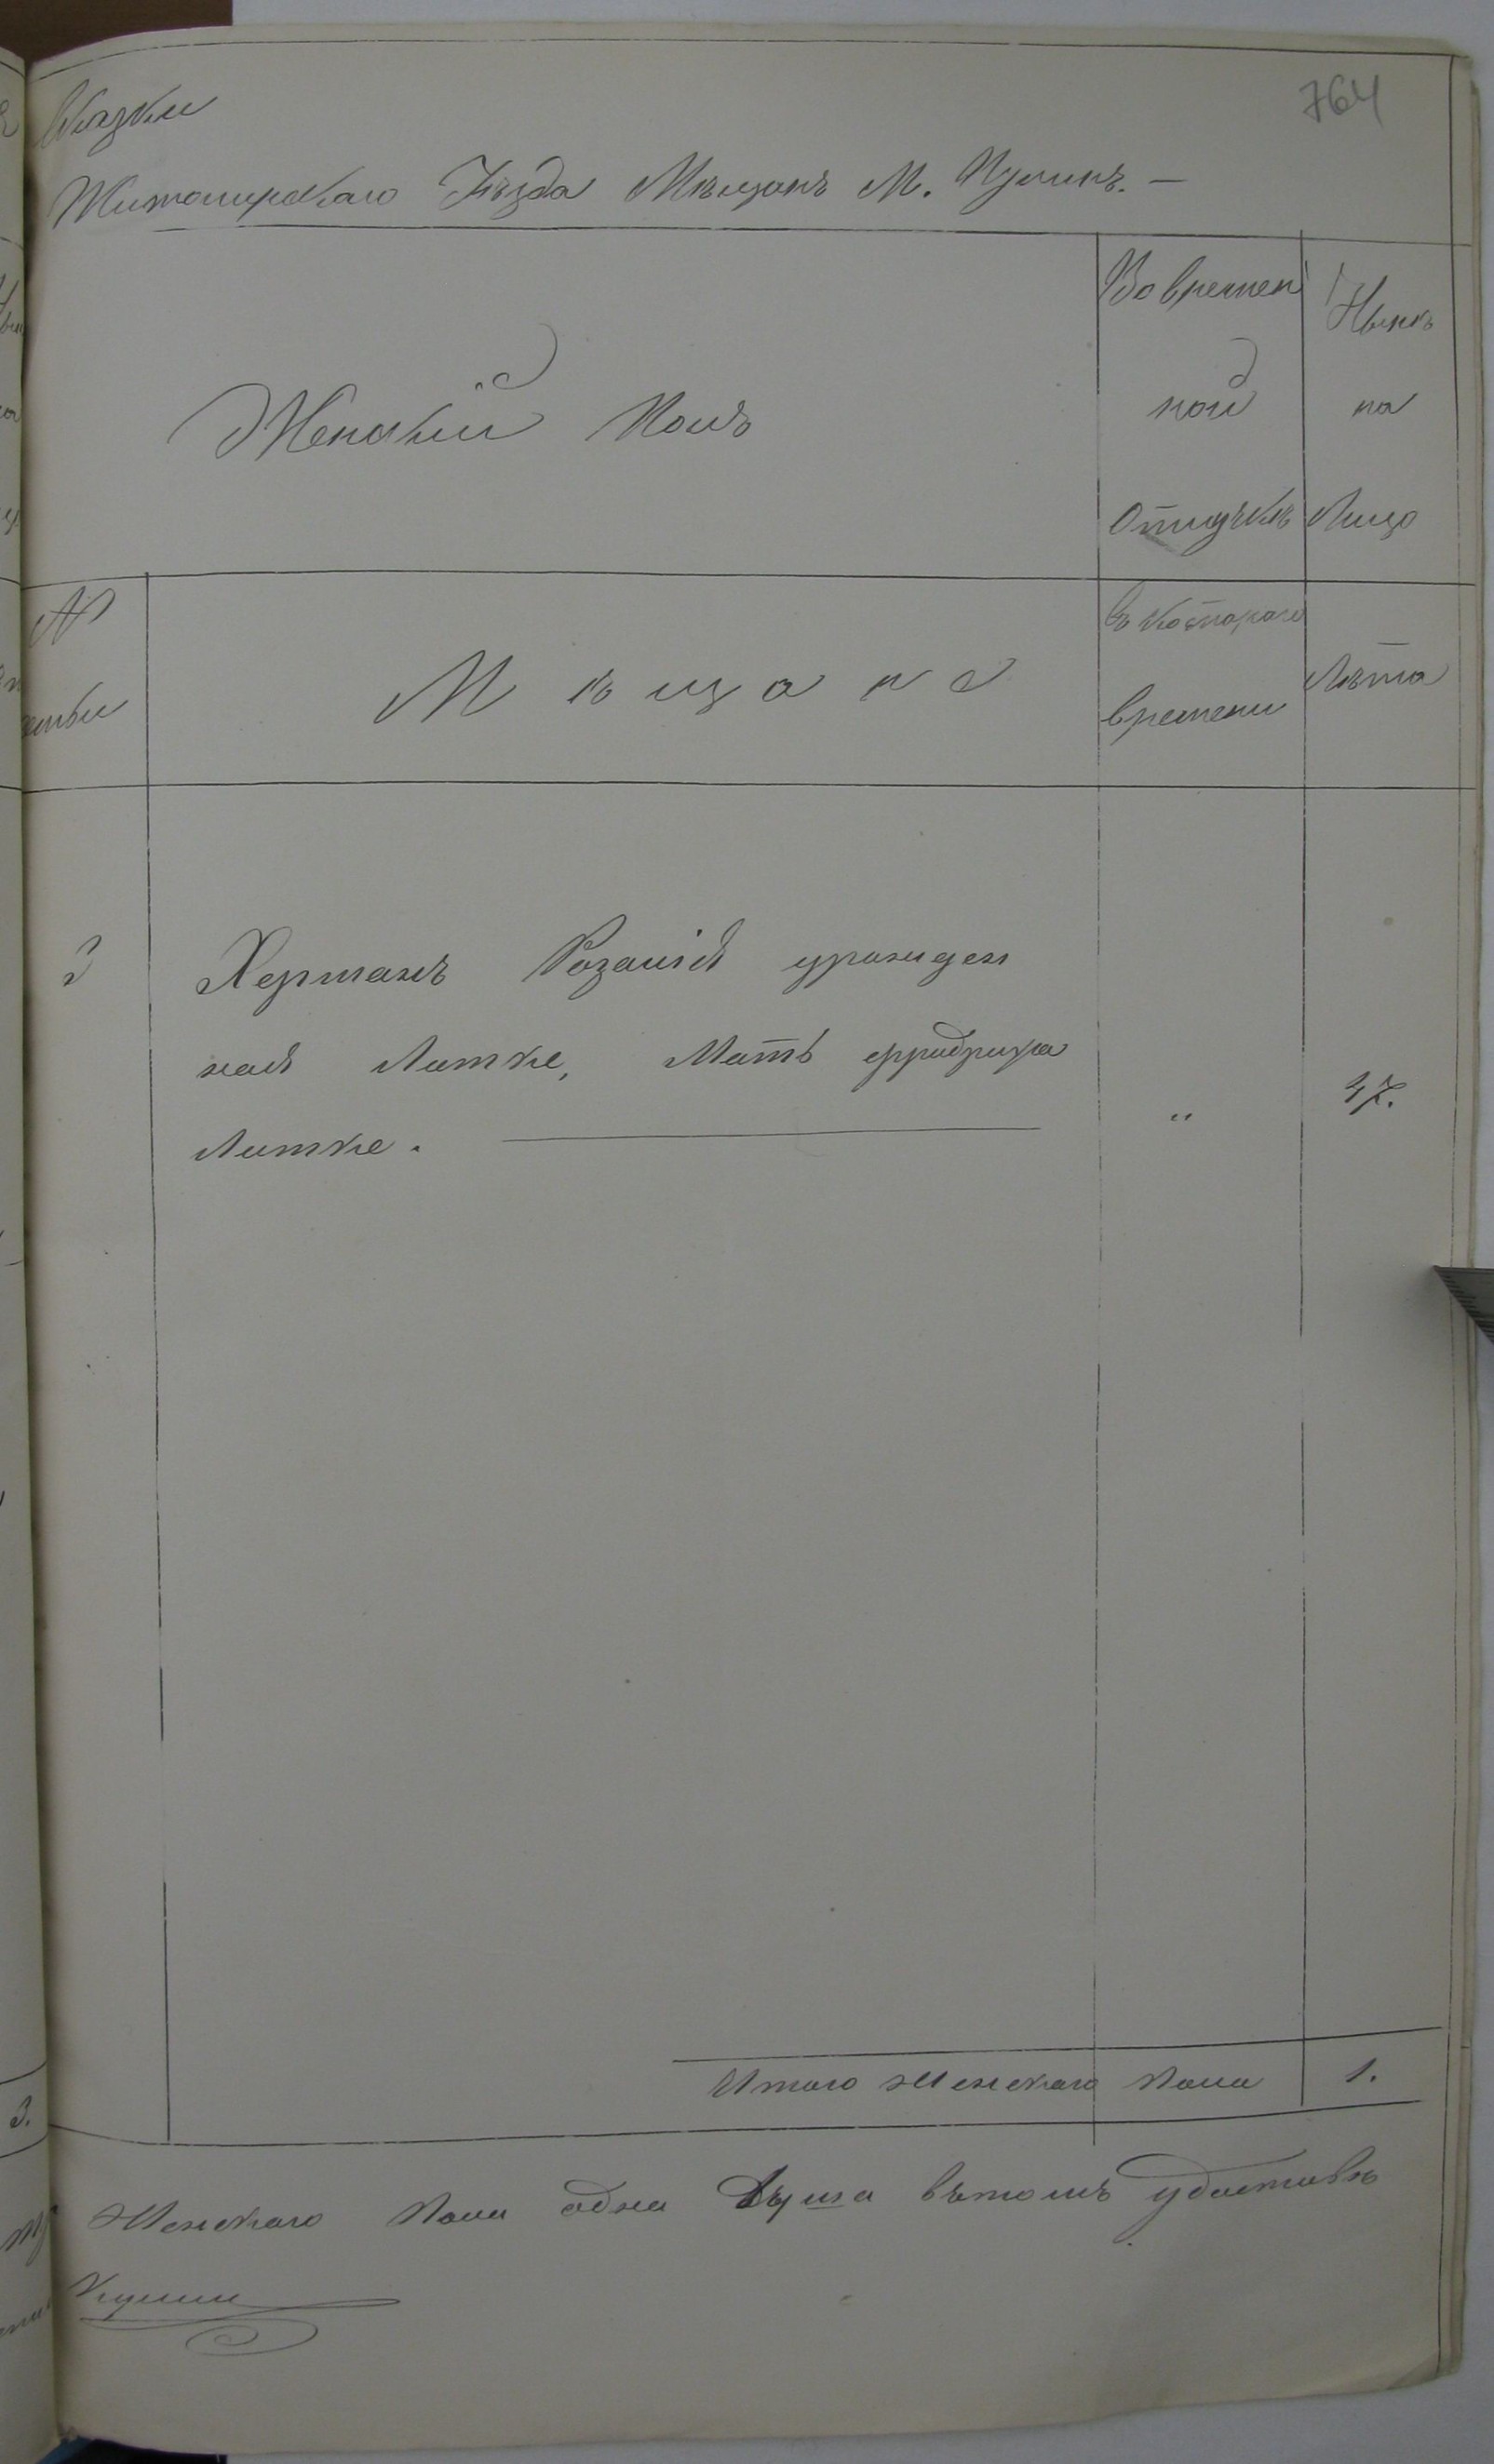 764
Сказки
Житомирскаго Уѣзда Мѣщанъ М. Пулинъ. —
Женскій Полъ
Во времен
ной
Отлучкѣ
Нынѣ
на
Лицо
№
емьи
Мѣщане
съ котораго
времени
Лѣта
3
Херманъ Розалія урожден
ная Литке, Мать фридриха
Литке.
"
47.
Итого женскаго пола
1.
женскаго пола одна душа вътомъ удостовѣ